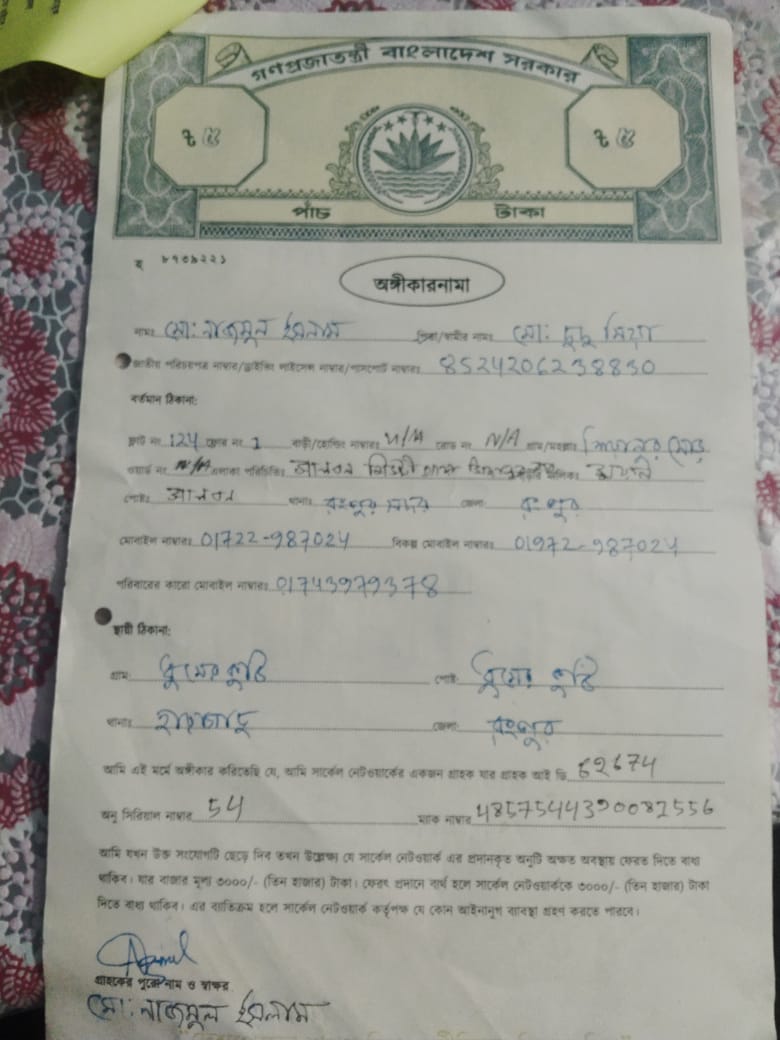 গণপ্রজাতন্ত্রী বাংলাদেশ সরকার
৳ ৫ ৳ ৫
পাঁচ টাকা
হ ৮৭৩৯২২১
অঙ্গীকারনামা
নামঃ মোঃ নাজমুল ইসলাম পিতা/স্বামীর নামঃ মোঃ দুদু মিয়া
জাতীয় পরিচয়পত্র নাম্বার/ড্রাইভিং লাইসেন্স নাম্বার/পাসপোর্ট নাম্বারঃ 8524206238830
বর্তমান ঠিকানা:
ফ্লাট নং 124 ফ্লোর নং 1 বাড়ী/হোল্ডিং নাম্বারঃ N/A রোড নং N/A গ্রাম/মহল্লাঃ
ওয়ার্ড নং N/A এলাকা পরিচিতিঃ
পোষ্টঃ থানাঃ রংপুর সদর জেলা: রংপুর
মোবাইল নাম্বারঃ 01722-987024 বিকল্প মোবাইল নাম্বারঃ 01972-987024
পরিবারের কারো মোবাইল নাম্বারঃ 01743979378
স্থায়ী ঠিকানা:
গ্রাম: পোষ্ট:
থানাঃ জেলা: রংপুর
আমি এই মর্মে অঙ্গীকার করিতেছি যে, আমি সার্কেল নেটওয়ার্কের একজন গ্রাহক যার গ্রাহক আই ডি 62674
অনু সিরিয়াল নাম্বার 54 ম্যাক নাম্বার 4857544390082556
আমি যখন উক্ত সংযোগটি ছেড়ে দিব তখন উল্লেক্ষ্য যে সার্কেল নেটওয়ার্ক এর প্রদানকৃত অনুটি অক্ষত অবস্থায় ফেরত দিতে বাধ্য
থাকিব। যার বাজার মূল্য ৩০০০/- (তিন হাজার) টাকা। ফেরৎ প্রদানে ব্যর্থ হলে সার্কেল নেটওয়ার্ককে ৩০০০/- (তিন হাজার) টাকা
দিতে বাধ্য থাকিব। এর ব্যতিক্রম হলে সার্কেল নেটওয়ার্ক কর্তৃপক্ষ যে কোন আইনানুগ ব্যাবস্থা গ্রহণ করতে পারবে।
গ্রাহকের পুরো নাম ও স্বাক্ষর
মোঃ নাজমুল ইসলাম